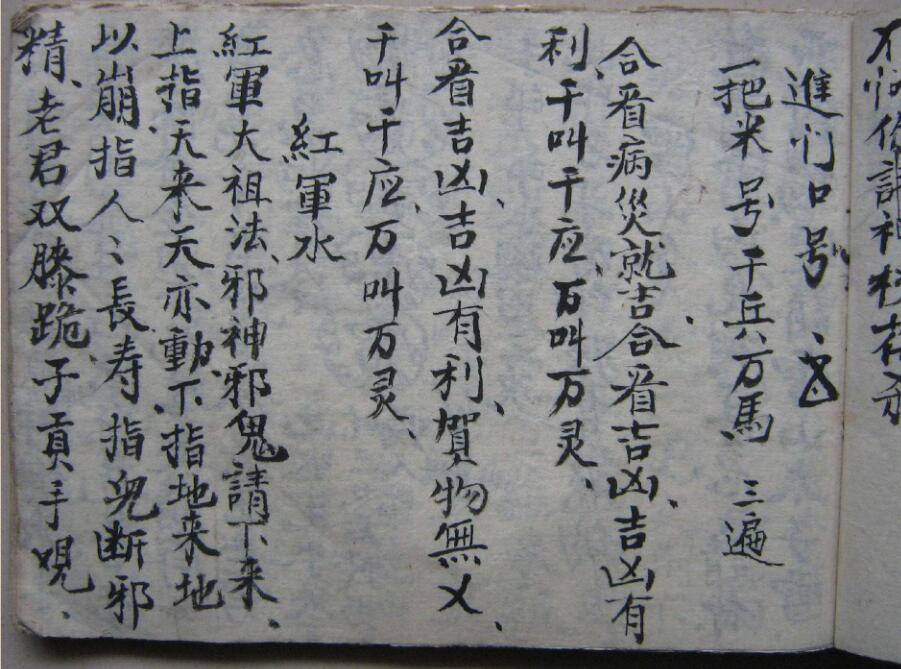 進们口号
一把米号千兵万馬 三遍
合看病災就吉合看吉凶、吉凶有
利、千叫千应、万叫万灵、
合看吉凶、吉凶有利、賀物無义、
千叫千应、万叫万灵、
紅軍水
紅軍大祖法、邪神邪鬼請下来、
上指天来天亦動、下指地来地
以崩指人〻長寿指鬼断邪
精、老君双膝跪、子貢手